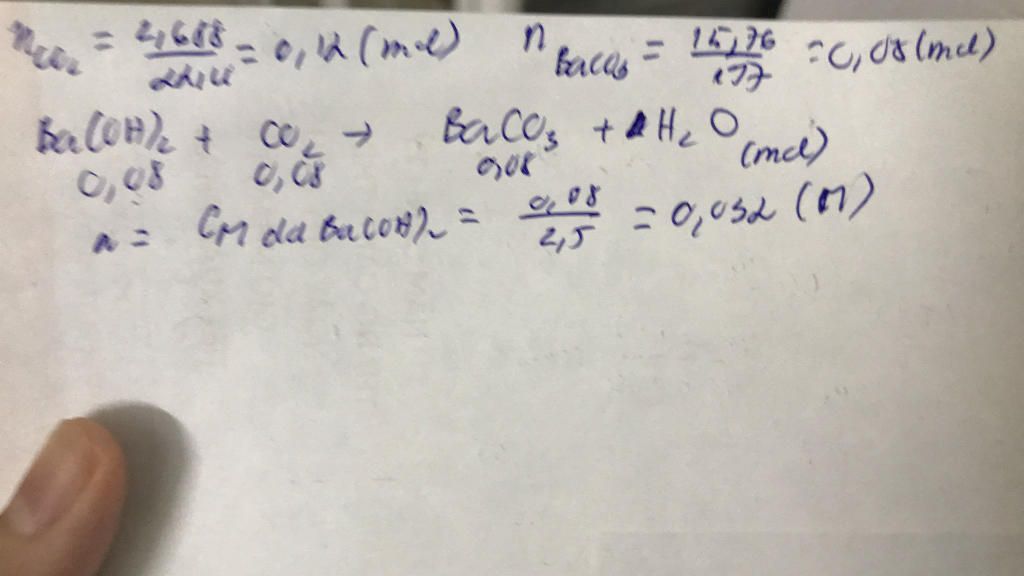 n CO₂ = 2,688/22,4 = 0,12 (mol) n BaCO₃ = 15,76/197 = 0,08 (mol)
Ba(OH)₂ + CO₂ → BaCO₃ + H₂O
0,08 0,08 0,08 (mol)
a = CM dd Ba(OH)₂ = 0,08/2,5 = 0,032 (M)